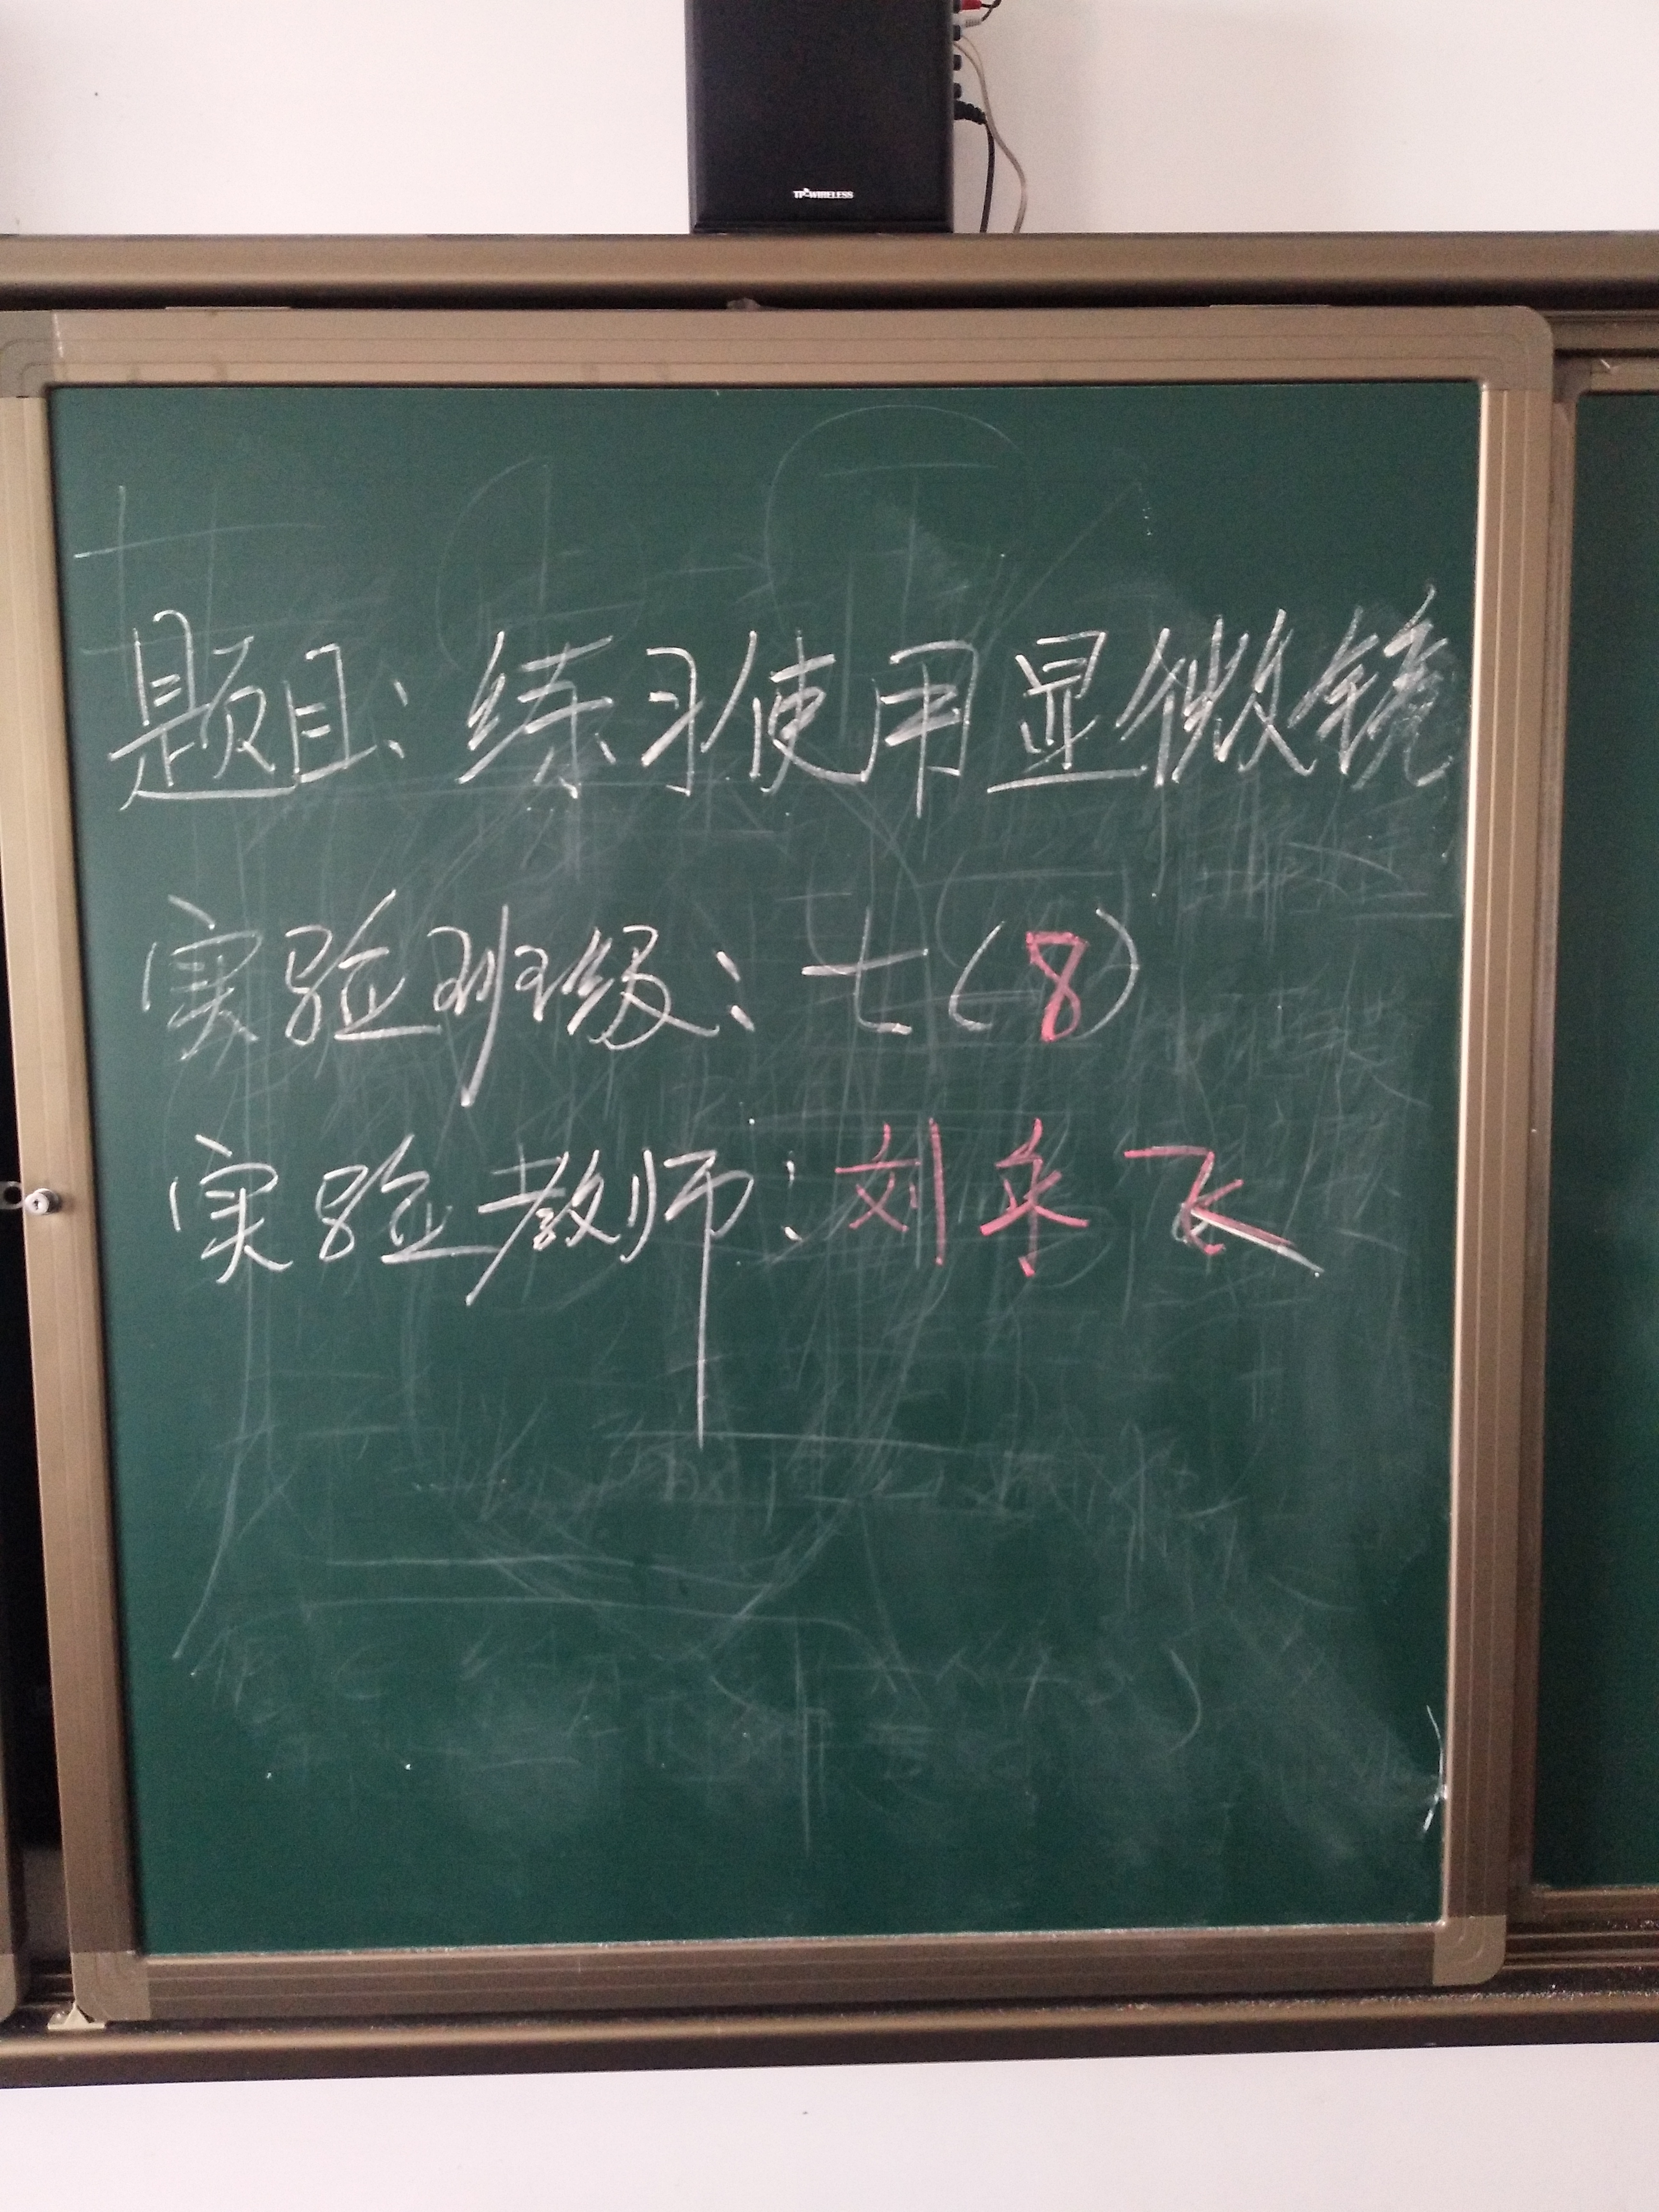 TP-WIRELESS
题目:练习使用显微镜
实验班级:七(8)
实验教师:刘乐飞